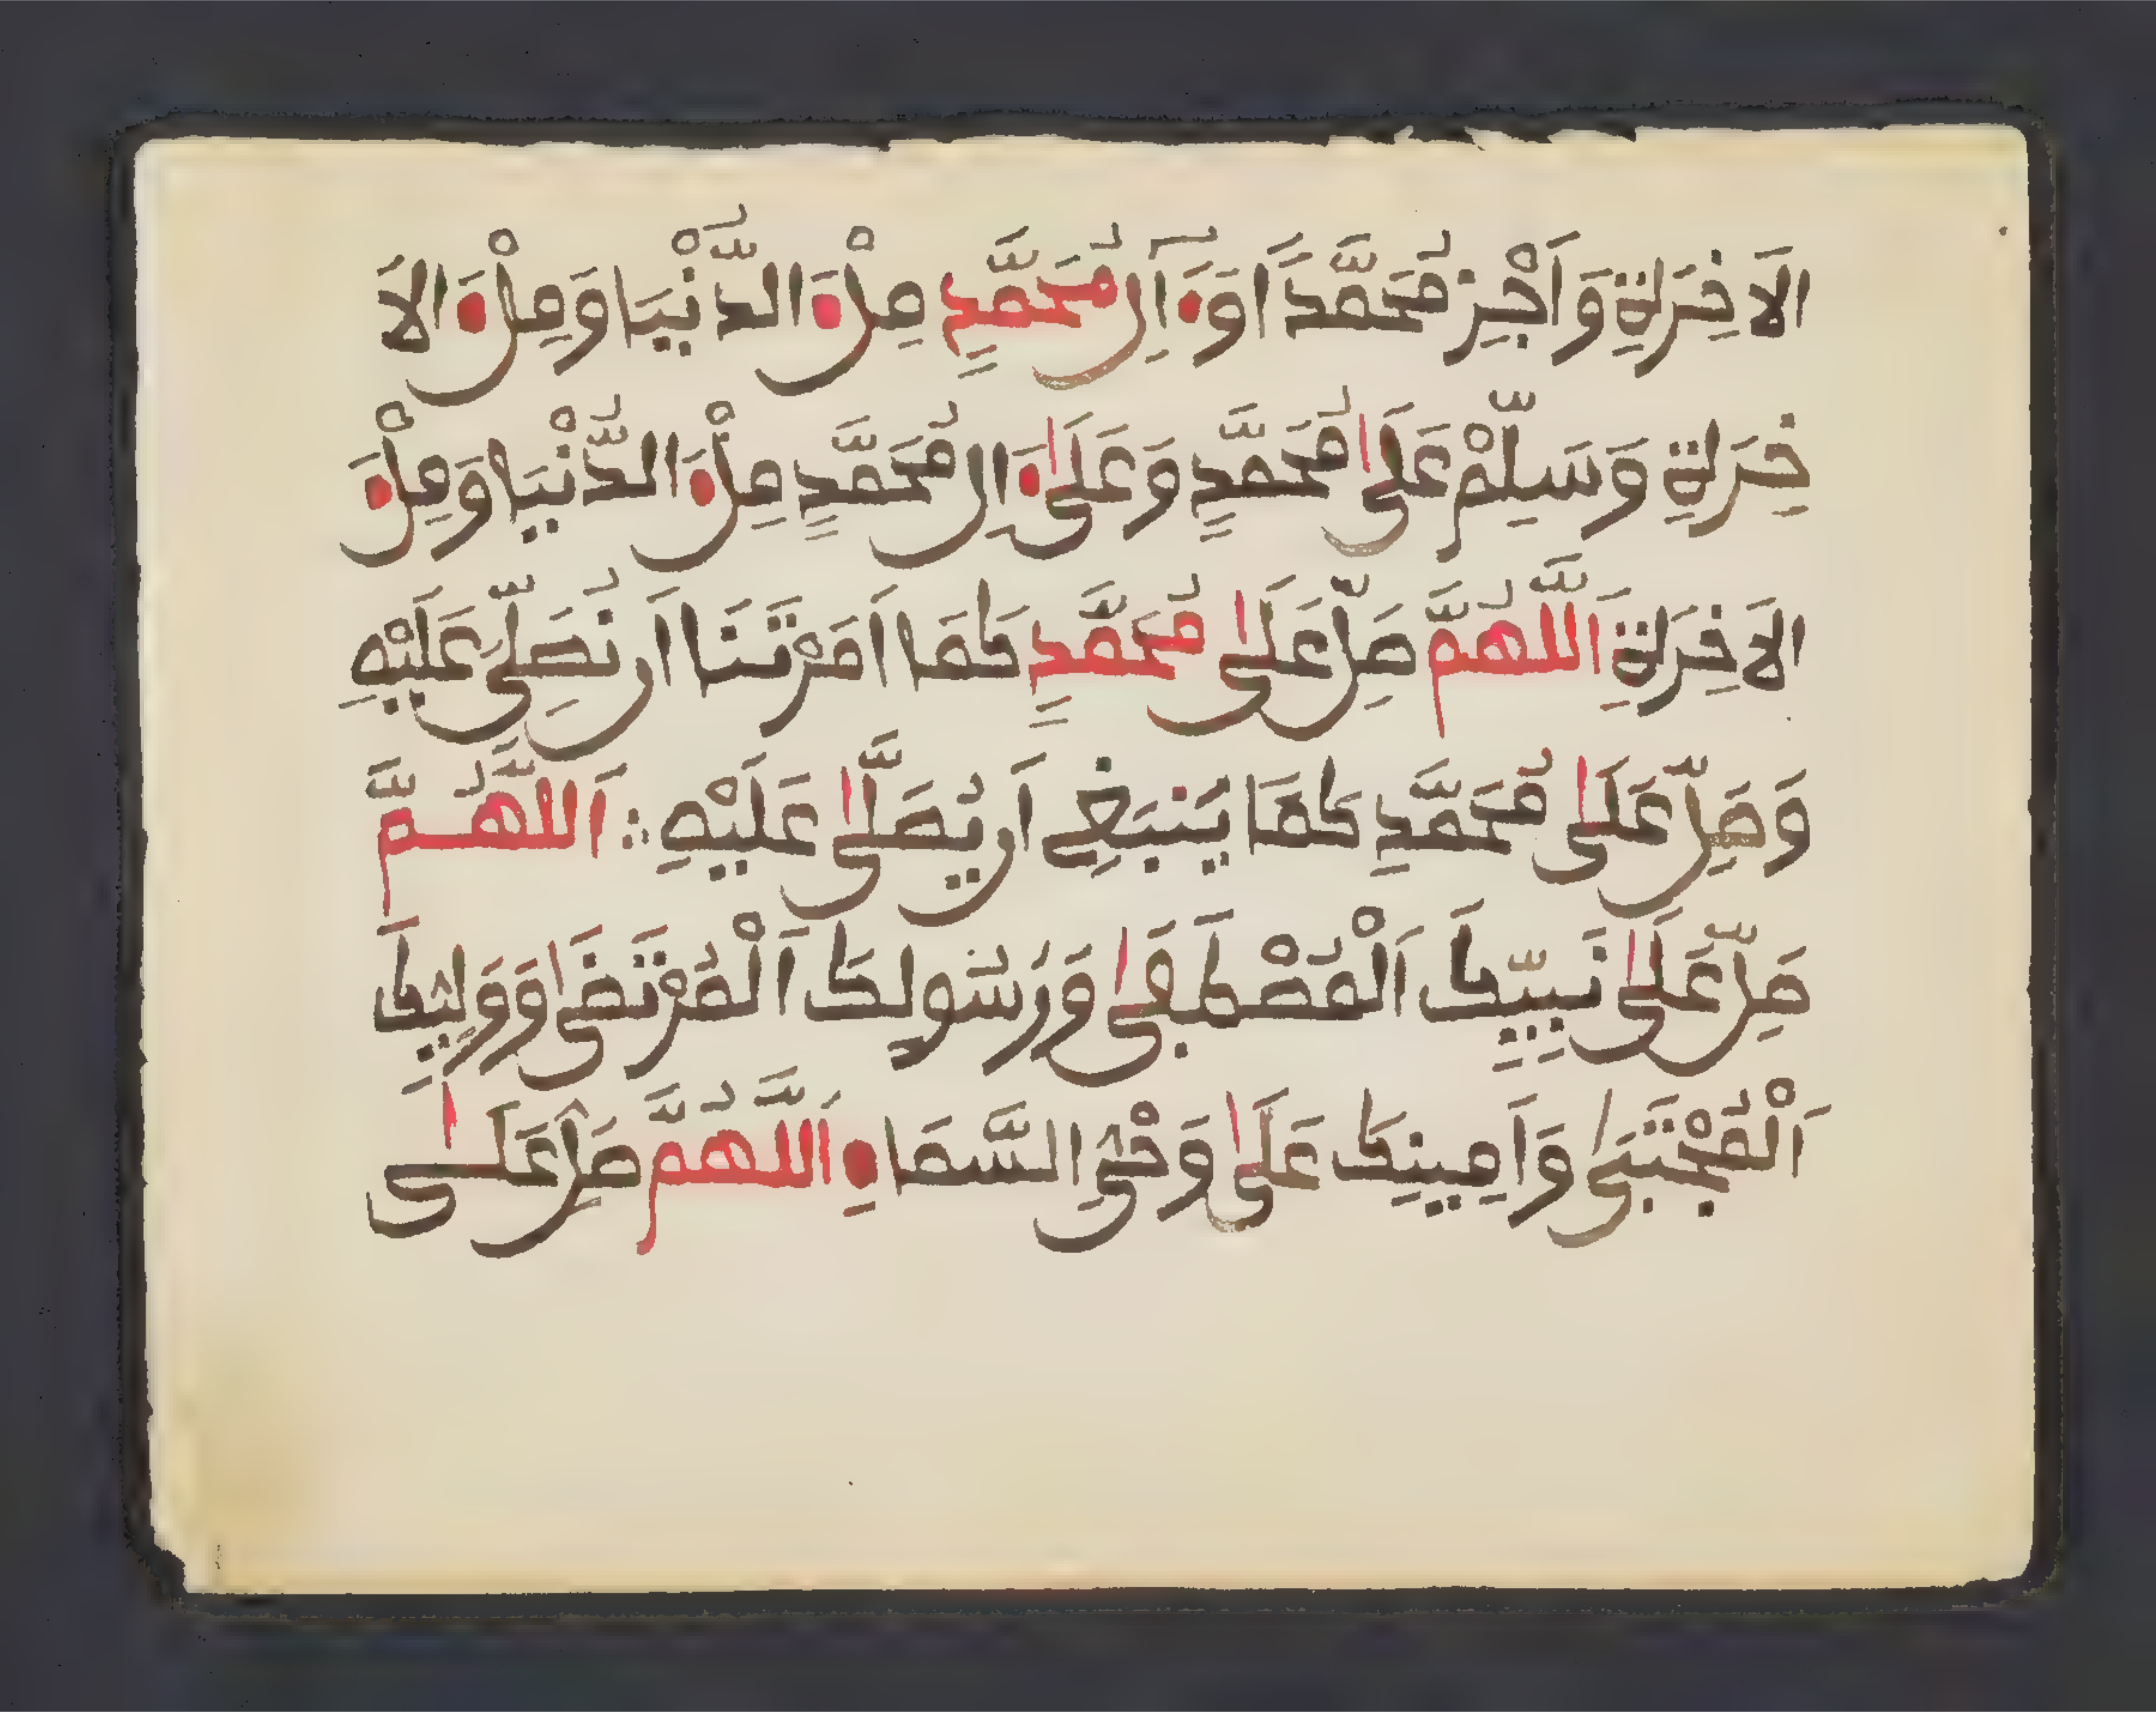 الَاخِرَةِ وَاَجْرِ مُحَمَّدًا وَءَالَ مُحَمَّدٍ مِلْءَ الدُّنْيَا وَمِلْءَ الاَ
خِرَةِ وَسَلِّمْ عَلَى مُحَمَّدٍ وَعَلَى ءَالِ مُحَمَّدٍ مِلْءَ الدُّنْيَا وَمِلْءَ
الاَخِرَةِ اَللَّهُمَّ صَلِّ عَلَى مُحَمَّدٍ كَمَا اَمَرْتَنَا اَن نُصَلِّيَ عَلَيْهِ
وَصَلِّ عَلَى مُحَمَّدٍ كَمَا يَنبَغِي اَن يُصَلَّى عَلَيْهِ ؞ اَللَّهُمَّ
صَلِّ عَلَى نَبِيِّكَ اَلْمُصْطَفَى وَرَسُولِكَ اَلْمُرْتَضَى وَوَلِيِّكَ
اَلْمُجْتَبَى وَاَمِينِكَ عَلَى وَحْيِ السَّمَاءِ اَللَّهُمَّ صَلِّ عَلَى